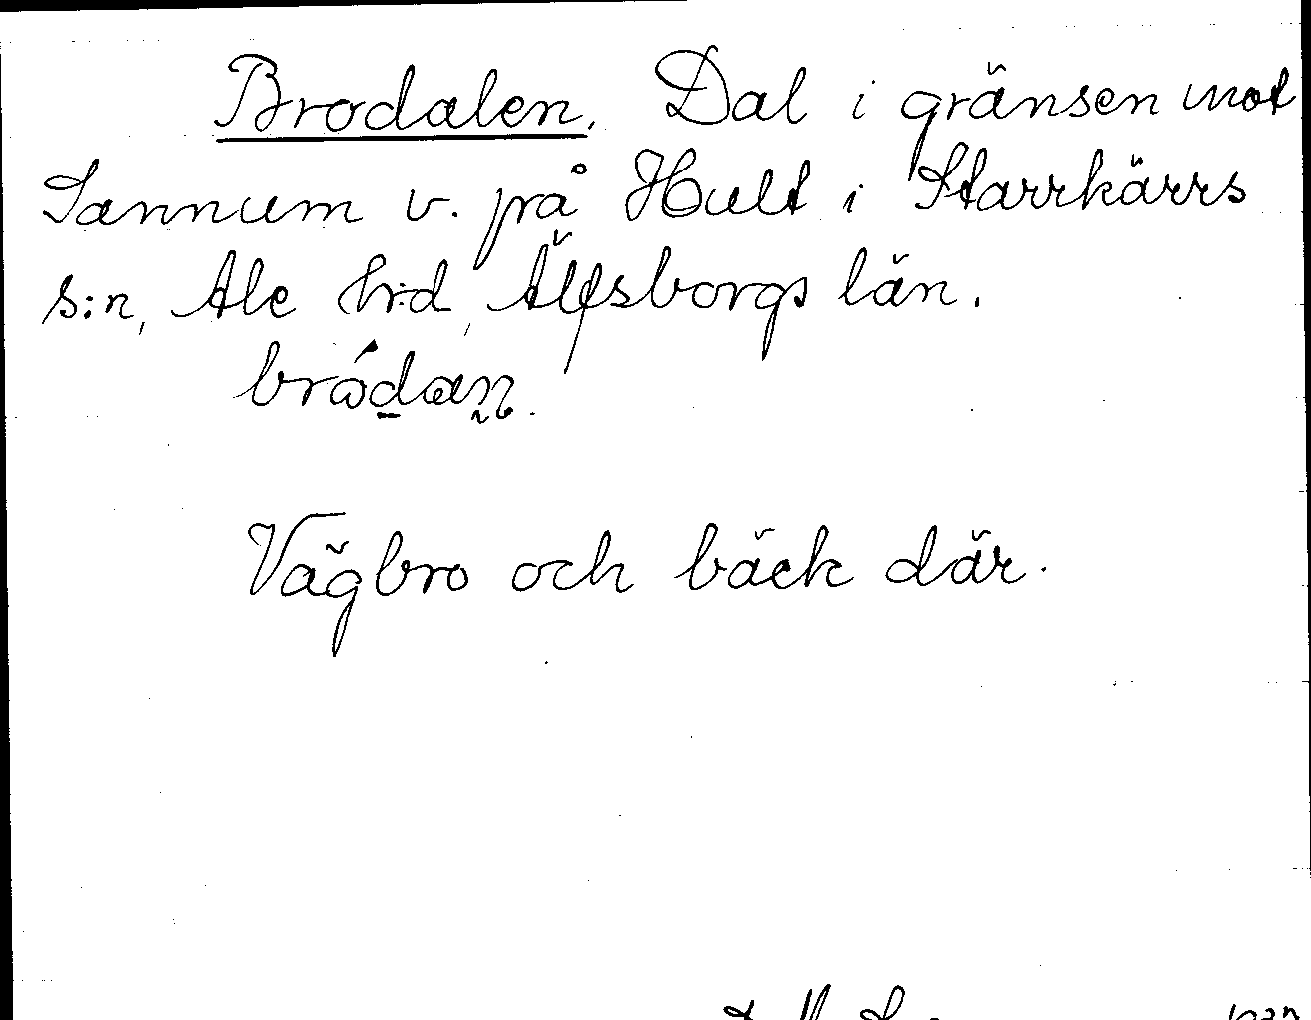 Brodalen. Dal i gränsen mot
Sannum v. på Hult i Starrkärrs
s:n, Ale h:d, Älfsborgs län.
brødan.
Vägbro och bäck där.